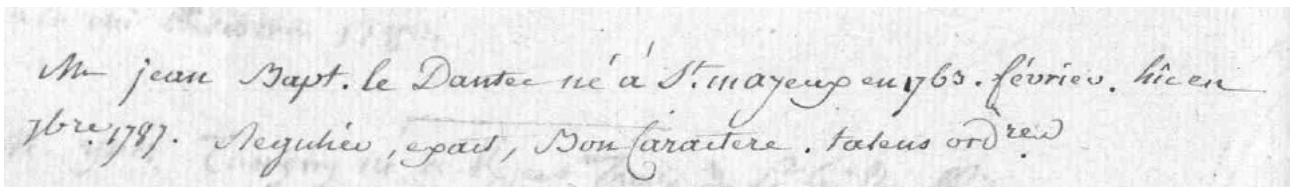 Mr jean Bapt. le Dantec né à St. mayeux en 1763. février. hîc en
7bre. 1787. Régulier, exact, Bon Caractere. talens ordres